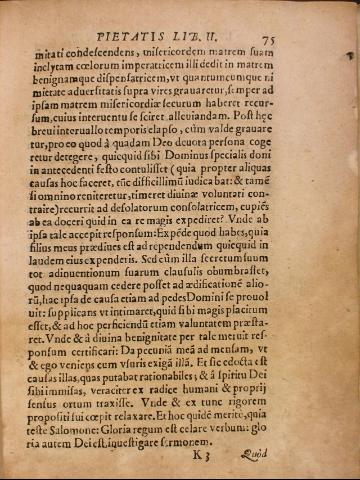 PIETATIS LIB. II. 75
mitati condescendens, misericordem matrem suam
inclytam cœlorum imperatricem illi dedit in matrem
benignamque dispensatricem, vt quantumcumque ni
mietate aduersitatis supra vires grauaretur, semper ad
ipsam matrem misericordiæ securum haberet recur-
sum, cuius interuentu se sciret alleuiandam. Post hęc
breui interuallo temporis elapso, cùm valde grauare
tur, pro eo quod à quadam Deo deuota persona coge
retur detegere, quicquid sibi Dominus specialis doni
in antecedenti festo contulisset (quia propter aliquas
causas hoc faceret, tũc difficillimũ iudicabat: & tamẽ
si omnino reniteretur, timeret diuinæ voluntati con-
traire) recurrit ad desolatorum consolatricem, cupiẽs
ab ea doceri quid in ea re magis expediret? Vnde ab
ipsa tale accepit responsum: Expẽde quod habes, quia
filius meus prædiues est ad rependendum quicquid in
laudem eius expenderis. Sed cùm illa secretum suum
tot adinuentionum suarum clausulis obumbrasset,
quod nequaquam cedere posset ad ædificationẽ alio-
rũ, hac ipsa de causa etiam ad pedes Domini se prouol
uit: supplicans vt intimaret, quid sibi magis placitum
esset, & ad hoc perficiendũ etiam voluntatem præsta-
ret. Vnde & à diuina benignitate per tale meruit res-
ponsum certificari: Da pecuniã meã ad mensam, vt
& ego veniẽs cum vsuris exigã illã. Et sic edocta est
causas illas, quas putabat rationabiles, & à spiritu Dei
sibi immissas, veraciter ex radice humani & proprij
sensus ortum traxisse. Vnde & ex tunc rigorem
propositi sui cœpit relaxare. Et hoc quidẽ meritò, quia
teste Salomone: Gloria regum est celare verbum: glo
ria autem Dei est, inuestigare sermonem.
K 3 Quòd